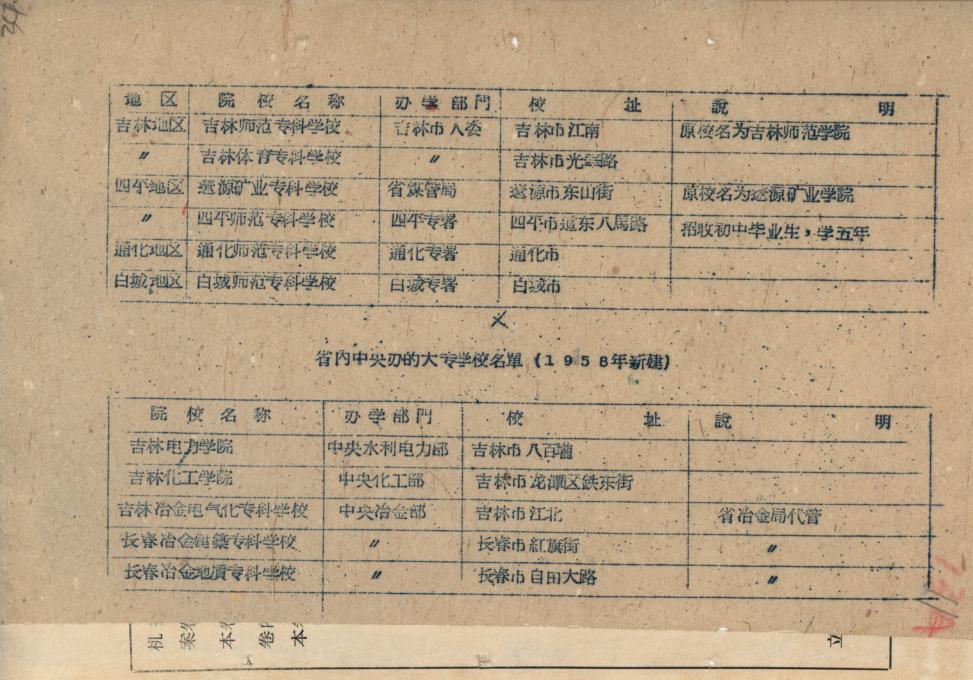 地区 院校名称 办学部門 校址 說明
吉林地区 吉林师范专科学校 吉林市人委 吉林市江南 原校名为吉林师范学院
〃 吉林体育专科学校 〃 吉林市光华路
四平地区 遼源矿业专科学校 省煤管局 遼源市东山街 原校名为遼源矿业学院
〃 四平师范专科学校 四平专署 四平市道东八馬路 招收初中毕业生，学五年
通化地区 通化师范专科学校 通化专署 通化市
白城地区 白城师范专科学校 白城专署 白城市
省内中央办的大专学校名單（1958年新建）
院校名称 办学部門 校址 說明
吉林电力学院 中央水利电力部 吉林市八百壠
吉林化工学院 中央化工部 吉林市龙潭区鉄东街
吉林冶金电气化专科学校 中央冶金部 吉林市江北 省冶金局代管
长春冶金建築专科学校 〃 长春市紅旗街 〃
长春冶金地质专科学校 〃 长春市自由大路 〃
机 案 本 卷 本 立